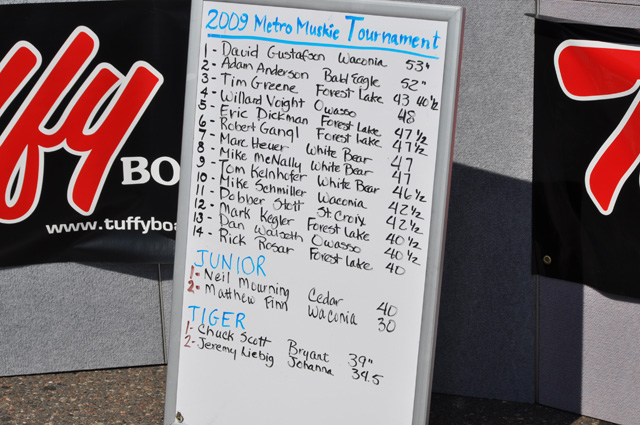 2009 Metro Muskie Tournament
1 - David Gustafson Waconia 53"
2 - Adam Anderson Bald Eagle 52"
3 - Tim Greene Forest Lake 43 40½
4 - Willard Voight Owasso 48
5 - Eric Dickman Forest Lake 47½
6 - Robert Gangl Forest Lake 47½
7 - Marc Heuer White Bear 47
8 - Mike McNally White Bear 47
9 - Tom Kelnhofer White Bear 46½
10 - Mike Schmiller Waconia 42½
11 - Dobber Stott St Croix 42½
12 - Mark Kegler Forest Lake 40½
13 - Dan Walseth Owasso 40½
14 - Rick Rosar Forest Lake 40
JUNIOR
1- Neil Mourning Cedar 40
2- Matthew Finn Waconia 30
TIGER
1- Chuck Scott Bryant 39"
2- Jeremy Liebig Johanna 34.5
ffy
BO
www.tuffyboa